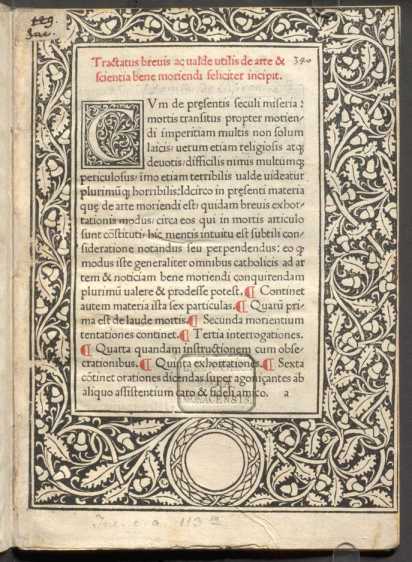 Tractatus breuis ac ualde utilis de arte &
scientia bene moriendi feliciter incipit.
340
CVm de pręsentis seculi miseria:
mortis transitus propter morien-
di imperitiam multis non solum
laicis: uerum etiam religiosis atq;
deuotis: difficilis nimis multumq;
periculosus: imo etiam terribilis ualde uideatur
plurimūq; horribilis: Idcirco in pręsenti materia
quę de arte moriendi est: quidam breuis exhor-
tationis modus: circa eos qui in mortis articulo
sunt cōstituti: hic mentis intuitu est subtili con-
sideratione notandus seu perpendendus: eo q̄
modus iste generaliter omnibus catholicis ad ar
tem & noticiam bene moriendi conquirendam
plurimū ualere & prodesse potest. ¶ Continet
autem materia ista sex particulas. ¶ Quarū pri-
ma est de laude mortis. ¶ Secunda morientium
tentationes continet. ¶ Tertia interrogationes.
¶ Quarta quandam instructionem cum obse-
crationibus. ¶ Quinta exhortationes. ¶ Sexta
cōtinet orationes dicendas super agonizantes ab
aliquo assistentium caro & fideli amico.
a
Inc. c. a. 113